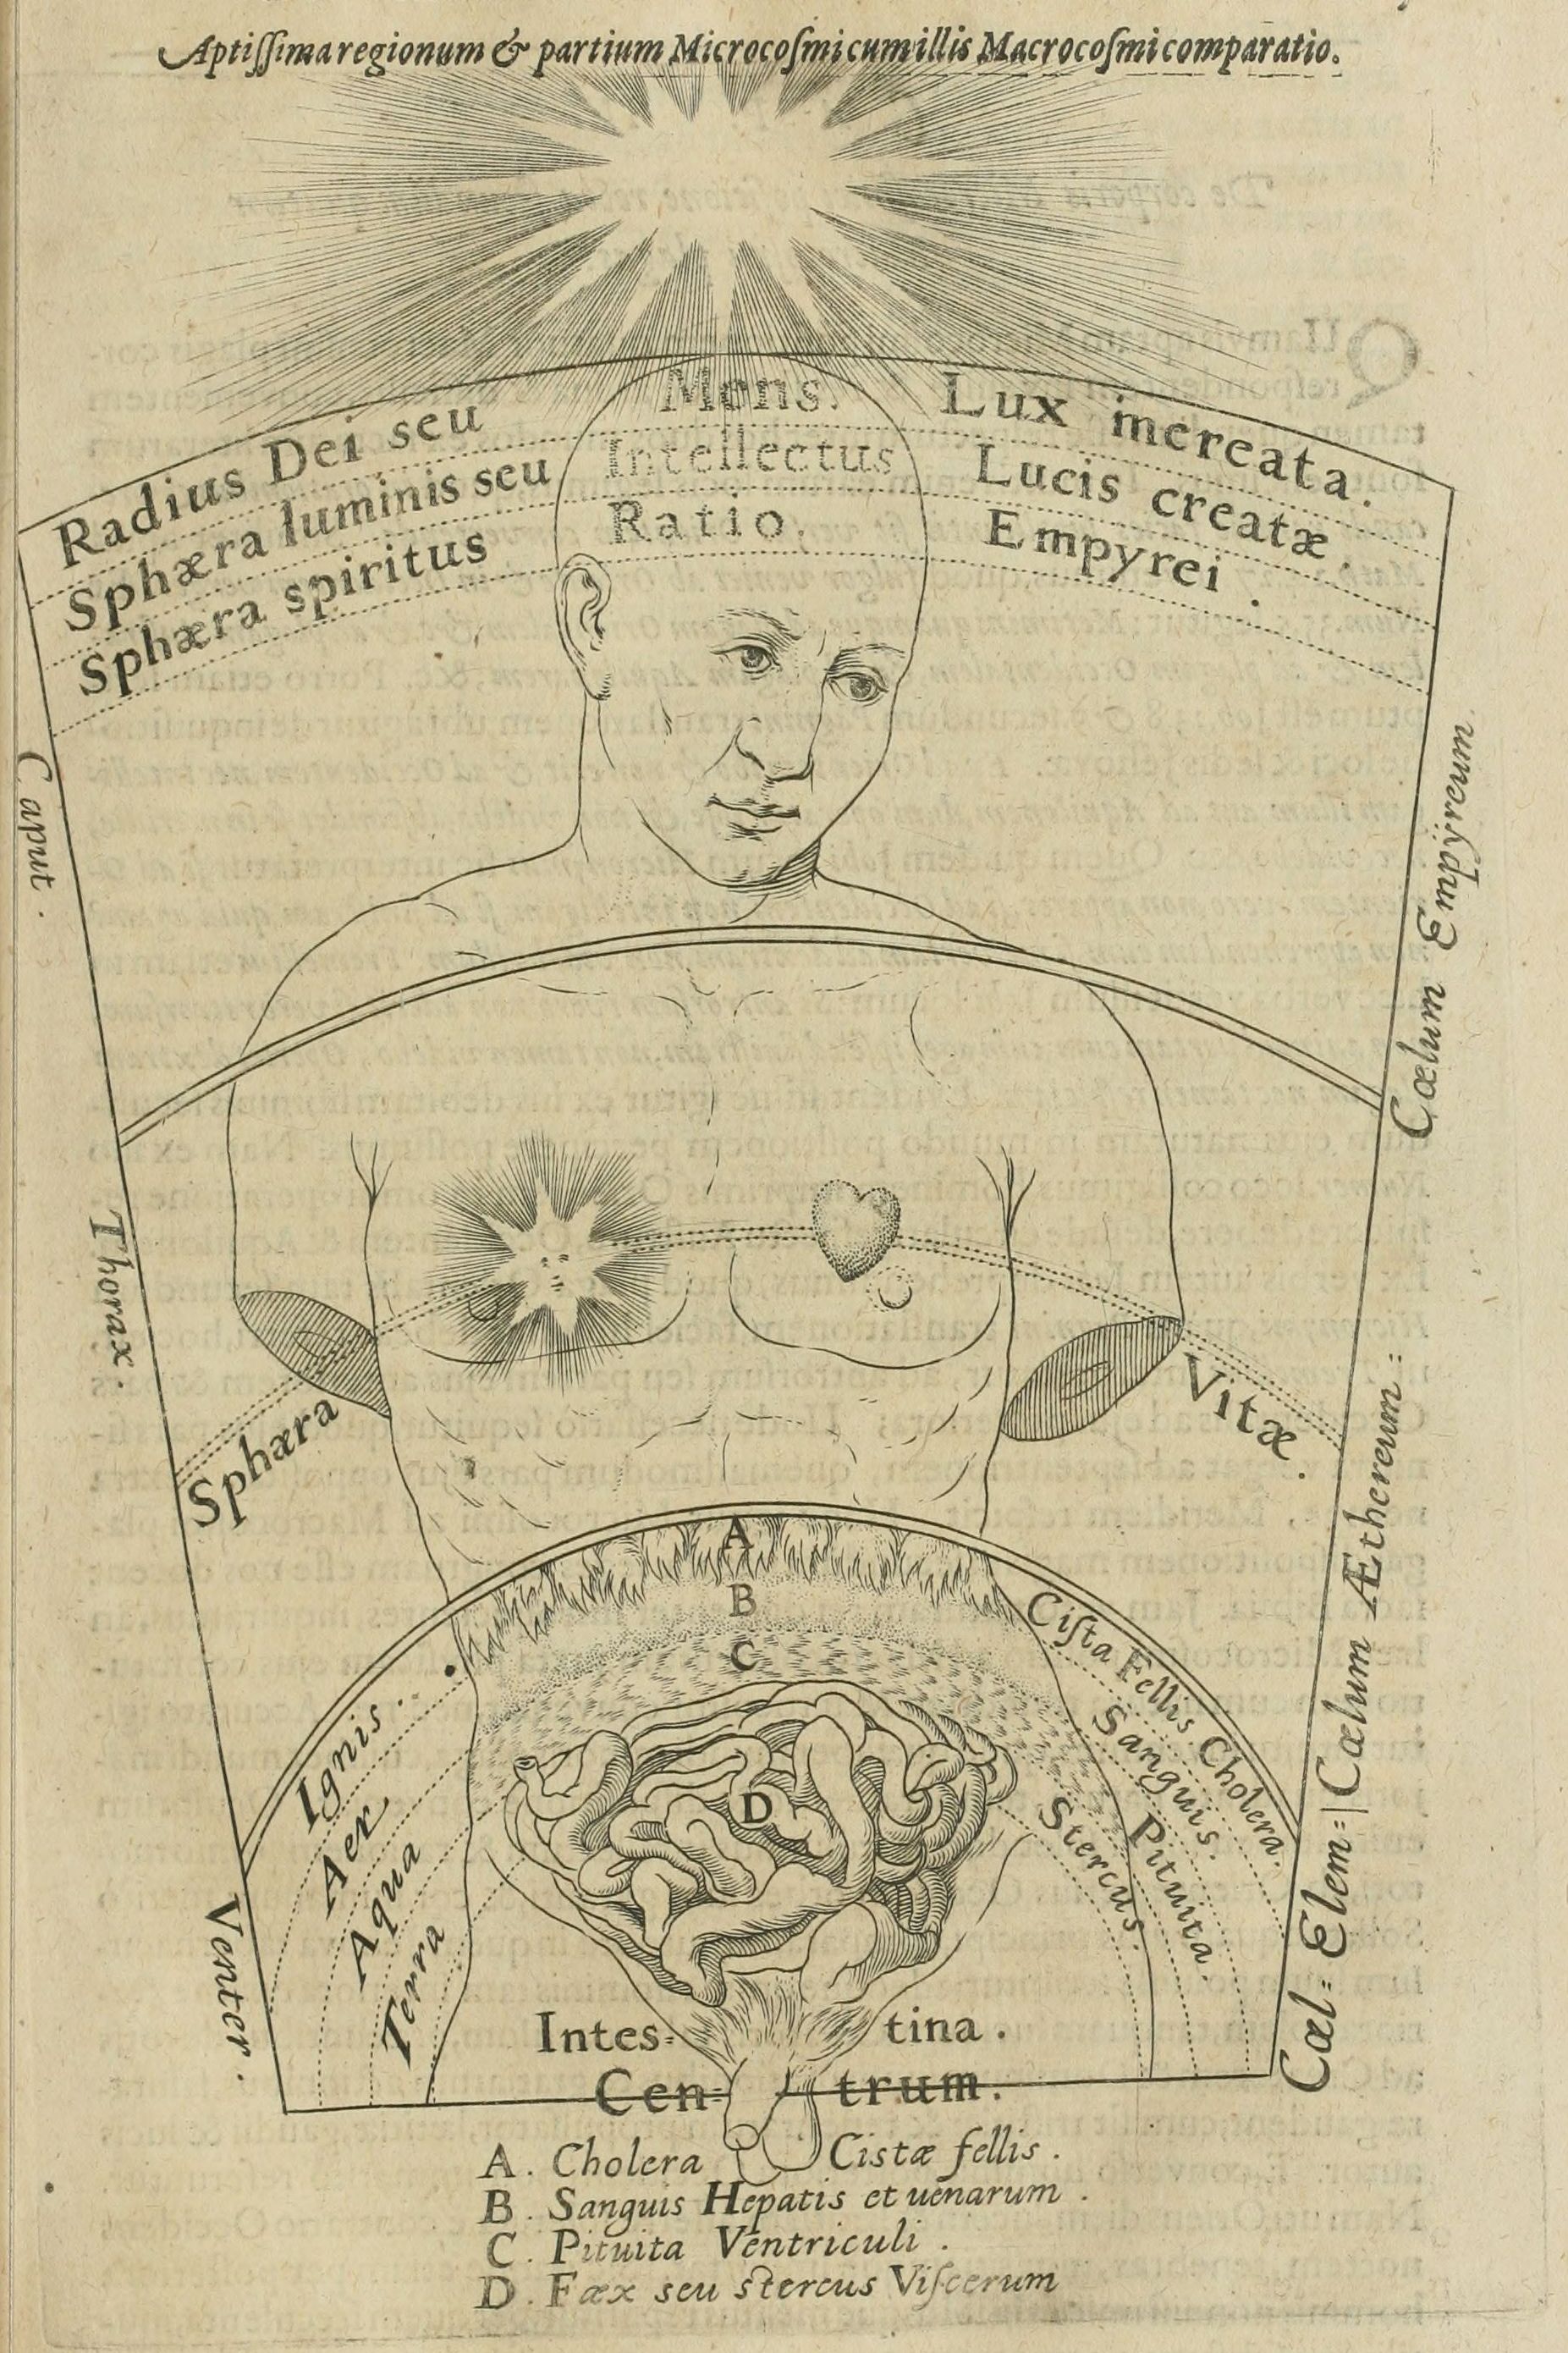 Aptiſſima regionum & partium Microcoſmi cum illis Macrocoſmi comparatio.
Radius Dei seu Mens. Lux increata.
Sphæra luminis seu Intellectus Lucis creatæ.
Sphæra spiritus Ratio. Empyrei.
Caput.
Cœlum Empÿreum
Thorax.
Sphæra Vitæ.
Cœlum Æthereum=
A
B
C
D
Ignis.
Aer
Aqua
Terra
Ciſta Fellis Cholera.
Sanguis.
Pituita.
Stercus.
Venter.
Cœl= Elem=
Intes= tina.
Cen= trum.
A. Cholera Cistæ fellis.
B. Sanguis Hepatis et uenarum.
C. Pituita Ventriculi.
D. Fæx seu stercus Viſcerum